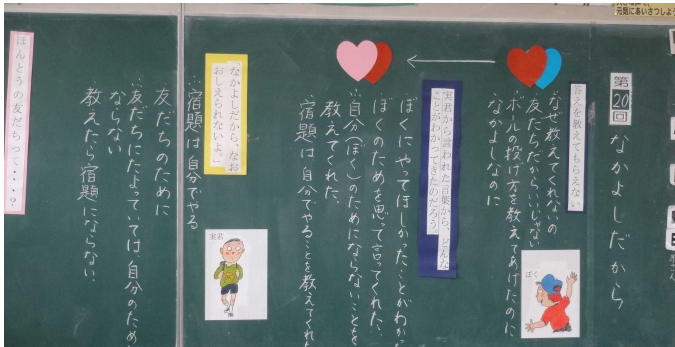 元気にあいさつしよう
第20回
なかよしだから
答えを教えてもらえない
なぜ教えてくれないの
友だちだからいいじゃない
ボールの投げ方を教えてあげたのに
なかよしなのに
ぼく
実君から言われた言葉から、どんな
ことがわかってきたのだろう。
ぼくにやってほしかったことがわかった
ぼくのためを思って言ってくれた。
自分(ぼく)のためにならないことを
教えてくれた。
宿題は自分でやることを教えてくれた
「なかよしだから、なお
おしえられないよ。」
宿題は自分でやる
実君
友だちのために
友だちにたよっていては自分のために
ならない
教えたら宿題にならない。
ほんとうの友だちって・・・?